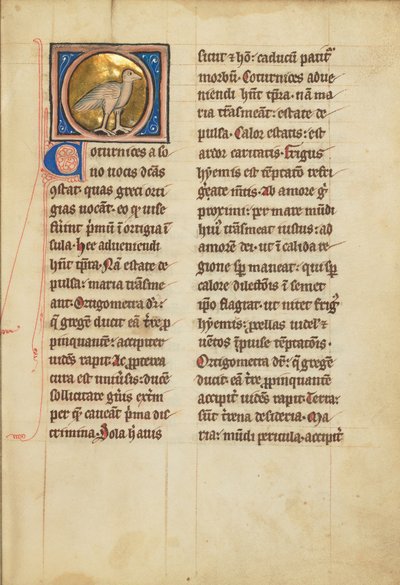 Coturnices a so
no uocis dictas
ɔstat. quas greci orti
gias uocant. eo qͥ uise
fuerint pͥmū ī ortigia ī
sula. Hee adueniendi
hn̄t tp̄ra. Nā estate de
pulsa: maria trāsme
ant. Ortigometra dr̄:
q̄ gregē ducit eā tr̄e ꝓ
pinquantē: accipiter
uidēs rapit. Ac ꝓpterea
cura est
sollicitate
per q̄ caueāt pͥma dis
crimina. Sola h̄ auis
sicut et hō: caducū patit᷑
morbū. Coturnices adue
niendi hn̄t tp̄ra. nā ma
ria trāsmeāt: estate de
pulsa. Calor estatis: est
ardor caritatis. Frigus
hyemis: est temptacio refri
gerate mētis. Ab amore gͦ
proximi: per mare mūdi
hui᷒ trāsmeat iustus: ad
amorē dei. ut ī calida re
gione sp̄ maneat: qui sp̄
calore dilectōis ī semet
ip̄o flagrat. ut uitet frig᷒
hyemis: ꝓcellas uidel᷑ ⁊
uētos īprouise tēptatōnis.
Ortigometra dr̄: q̄ gregē
ducit. eā tr̄e ꝓpinquantē
accipit᷑ uidēs rapit. Terra:
sūt tr̄ena desideria. Ma
ria: mūdi pericula. accipit᷑